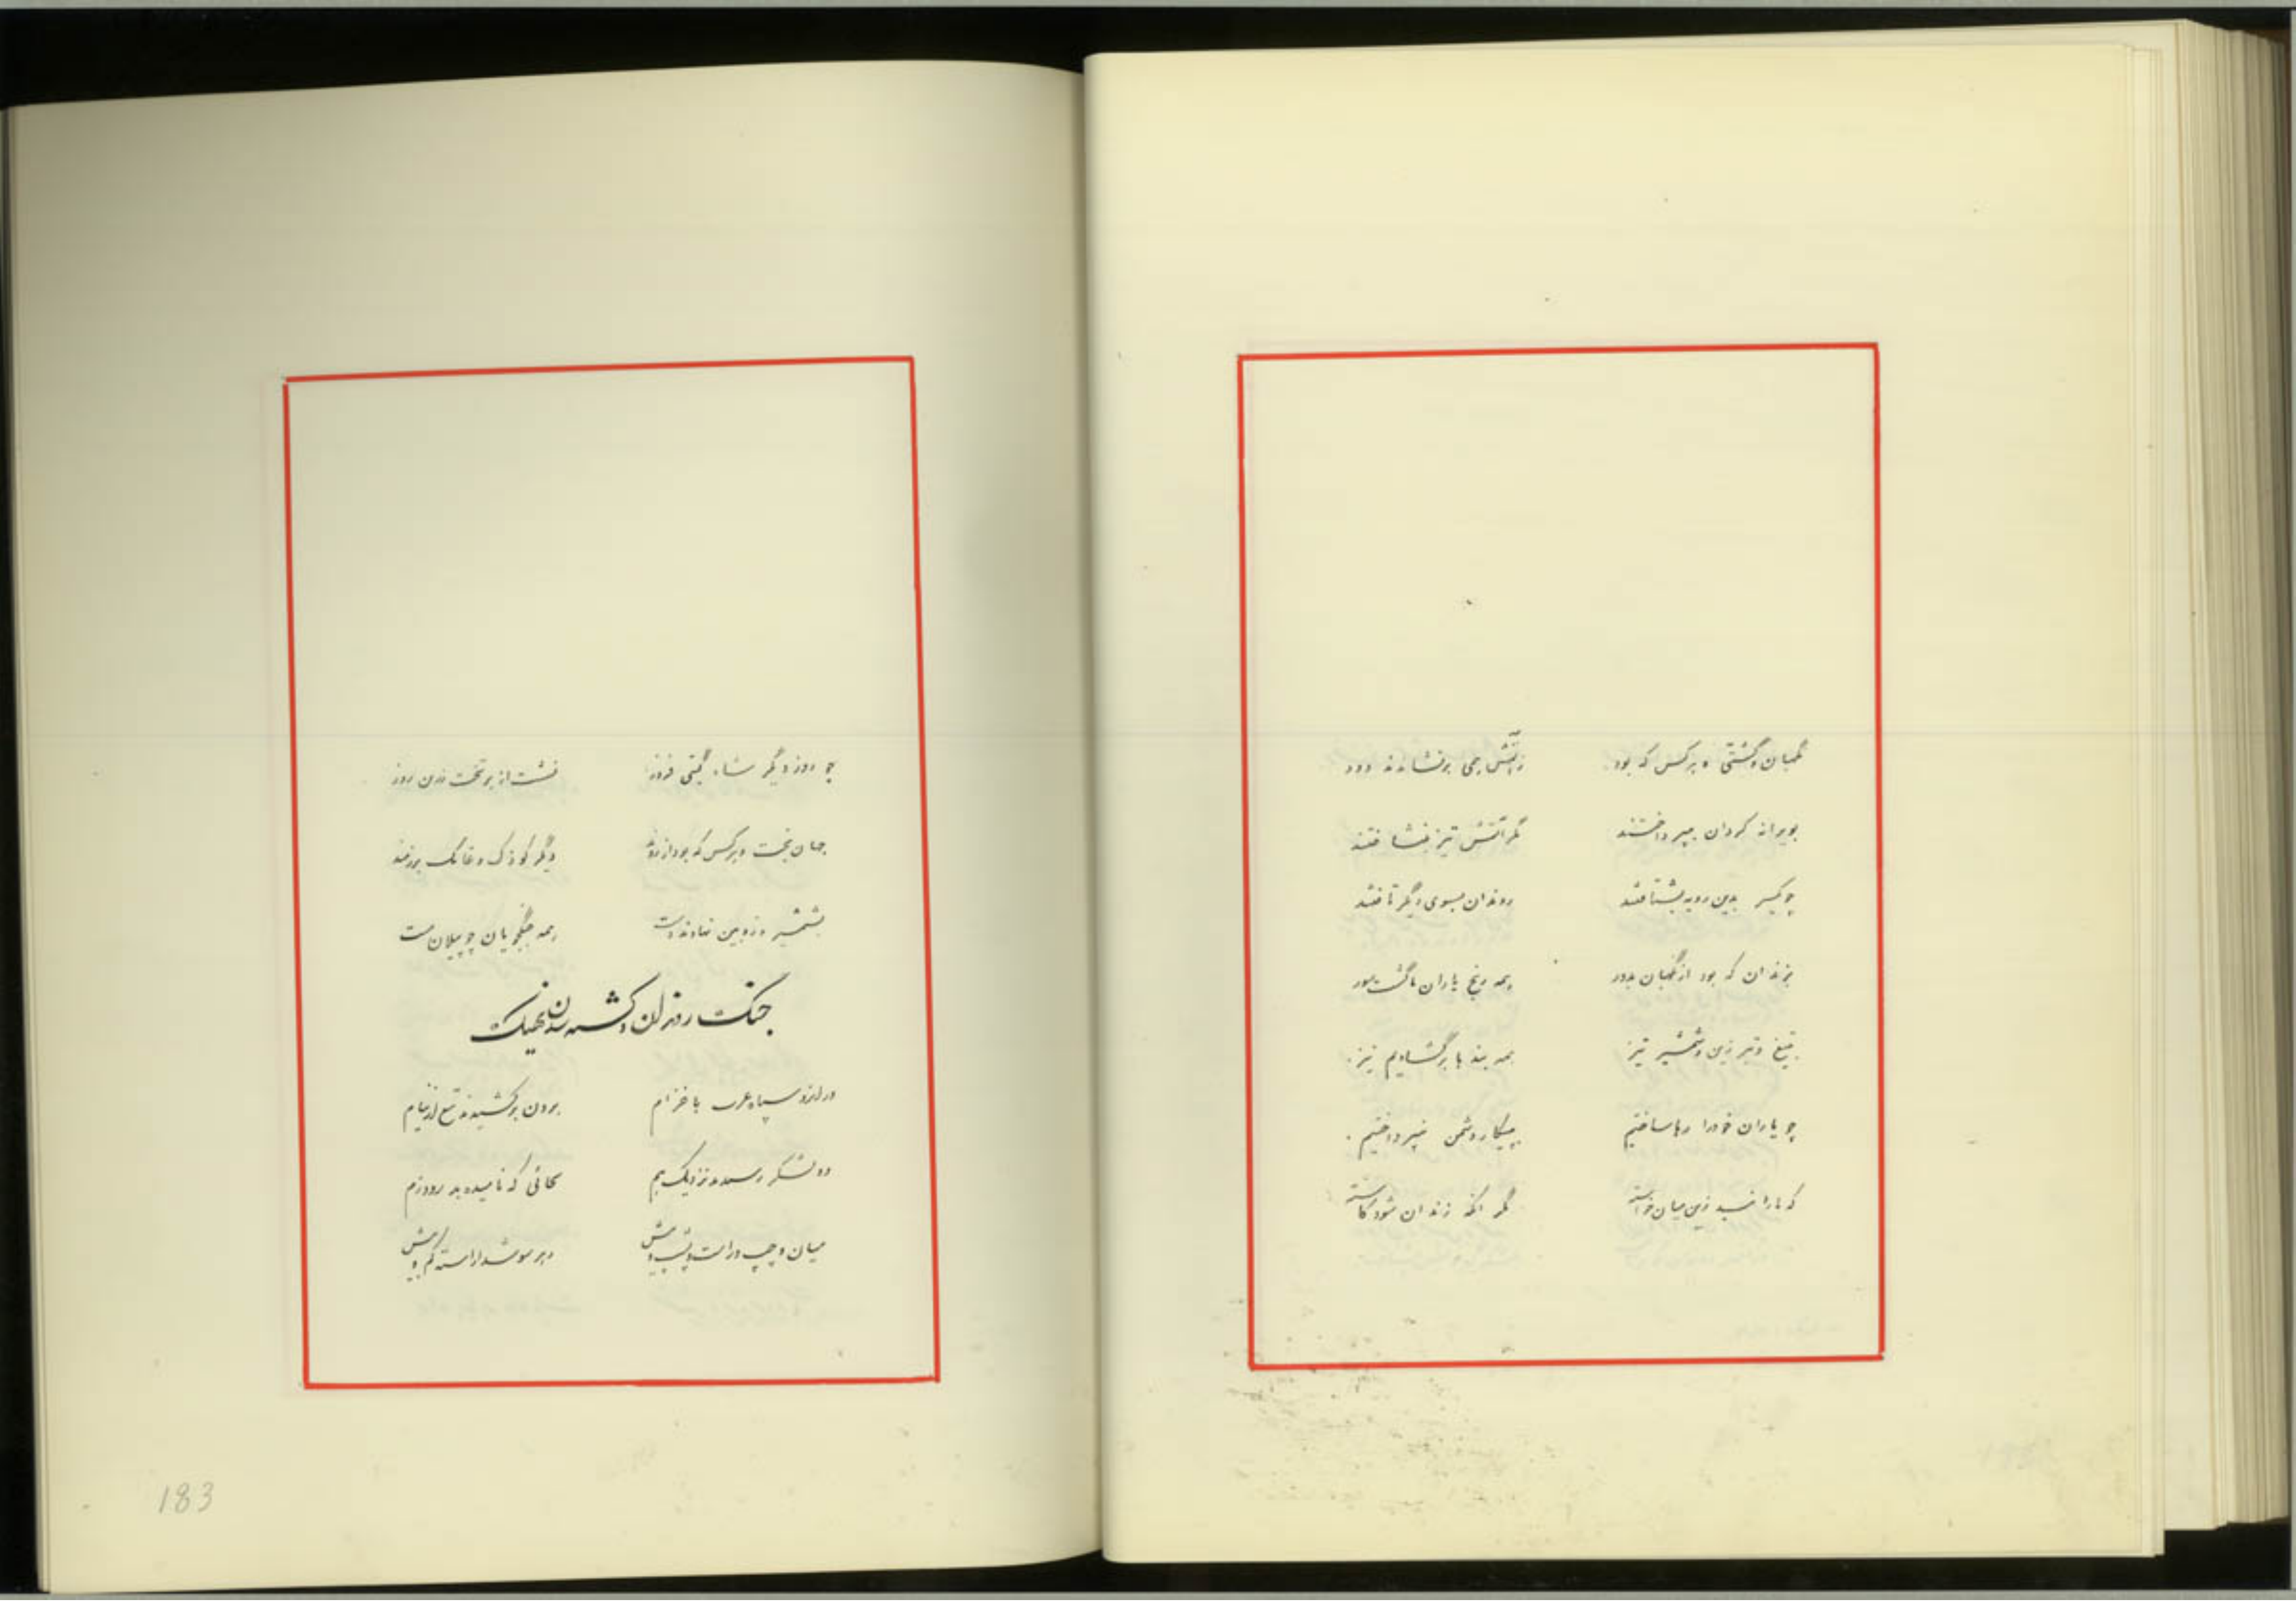 نگهبان و کشتی و هرکس که بود    ز آتش همی برفشاندند دود
بویرانه گردان بپرداختند    مگر آتش تیز بنشاختند
چو یکسر بدین رویه بشتافتند    روندان بسوی دیگر تافتند
بزندان که بود از نگهبان بدور    همه رنج یاران ما گشت سور
بتیغ و تبرزین و شمشیر تیز    همه بندها برگشادیم نیز
چو یاران خود را رها ساختیم    به پیکار دشمن نپرداختیم
که ما را نبد زین میان خواسته    مگر آنکه زندان شود کاسته
چو روز دیگر شاه گیتی فروز    نشست از بر تخت زرین روز
جهان و هرکس که بود    دگر کودک
بشمشیر و زوبین نهادند دست    همه جنگجویان چو پیلان مست
جنگ
سپاه عرب با خزام    برون برکشیدند تیغ از نیام
دو لشکر رسیدند نزدیک هم    بجائی که نامیده بد رود زم
میان و چپ و راست و پس و پیش    بهر سو شد آراسته کم و بیش
183